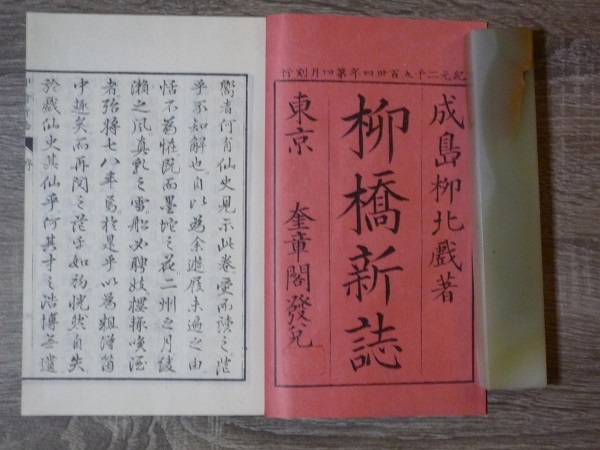 紀元二千五百卅四年第四月刻行
成島柳北戲著
柳橋新誌
東京 奎章閣發兌
嚮者何有仙史見示此卷受而讀之茫
乎不知解也自以為余遊履未遍之由
恬不為怪既而墨坨之花二州之月綾
瀨之風真乳之雪船必聘妓樓採喚酒
者殆將七八年焉於是乎以為粗漕箇
中趣矣而再閱之茫乎如初恍然自失
於戲仙史其仙乎何其才之浩博無遺